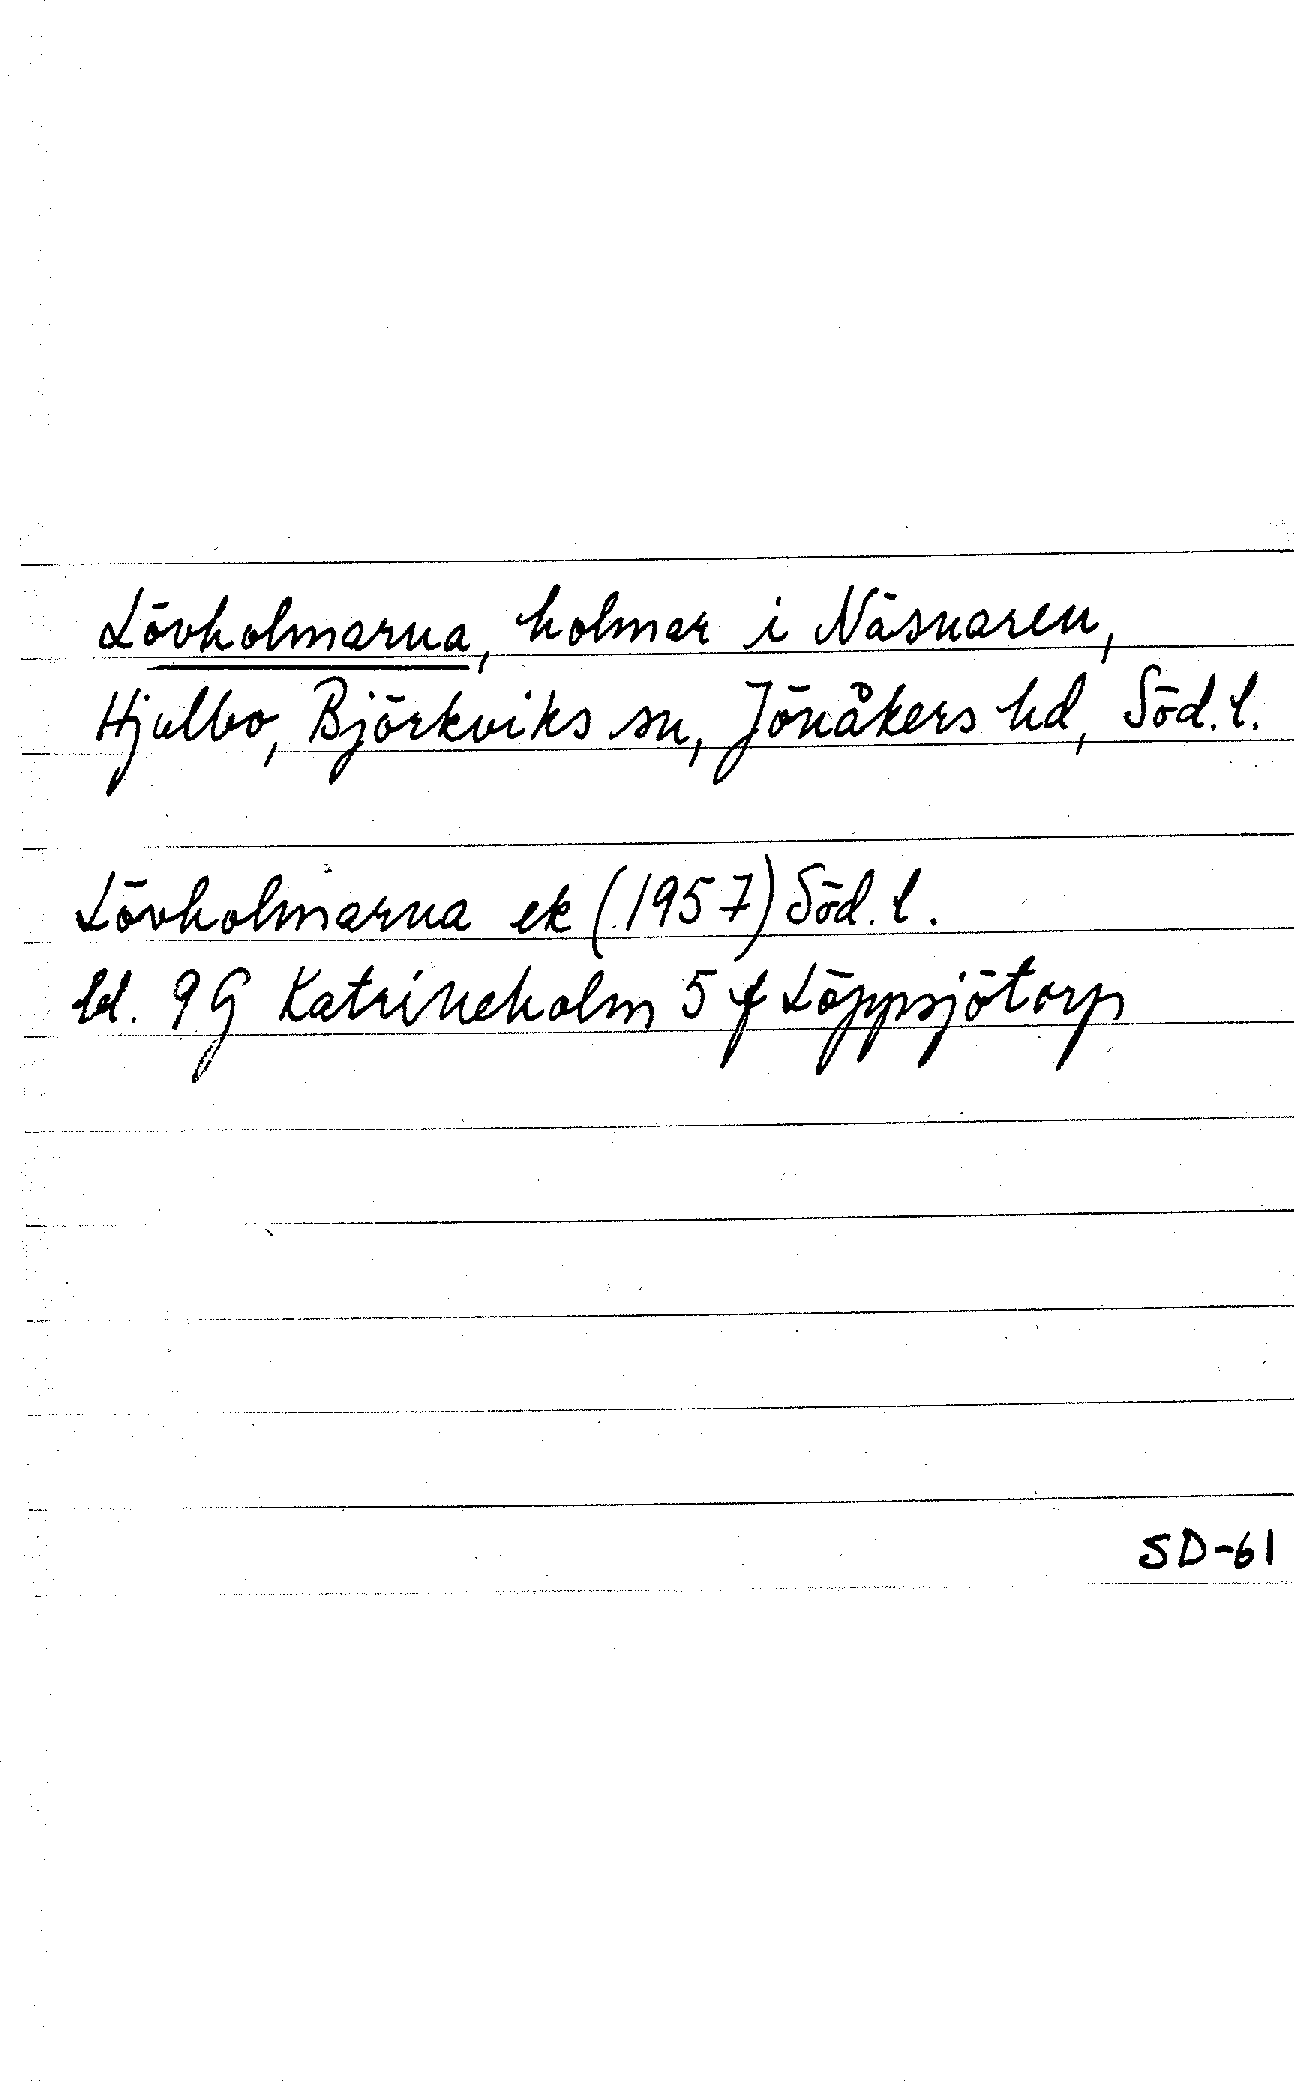 Lövholmarna, holmar i Näsnaren,
Hjulbo, Björkviks sn, Jönåkers hd, Söd. l.
Lövholmarna ek (1957) Söd. l.
bl. 9G Katrineholm 5 f Löppsjötorp
SD-61